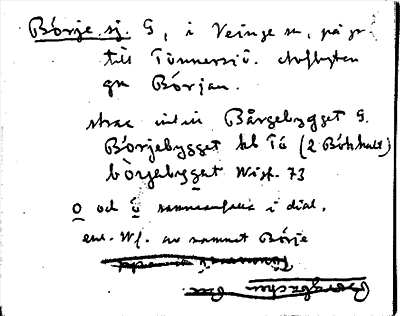 Börje sj. S, i Veinge sn, på gr
till Tönnersjö.
gm Början.
strax intill Bårgebygget S.
Börjebygget hl Tö (2 Bökhult)
börjebygget Wisf. 73
o och ö sammanfalla i dial.
enl. Wf. av namnet Börje